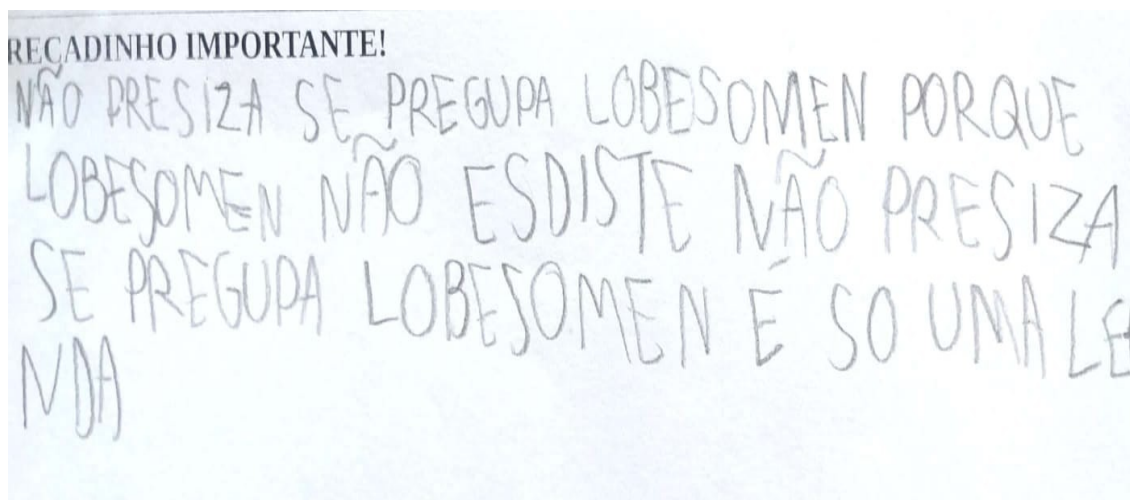 RECADINHO IMPORTANTE!
NÃO PRESIZA SE PREGUPA LOBESOMEN PORQUE
LOBESOMEN NÃO ESDISTE NÃO PRESIZA
SE PREGUPA LOBESOMEN É SO UMA LE
NDA